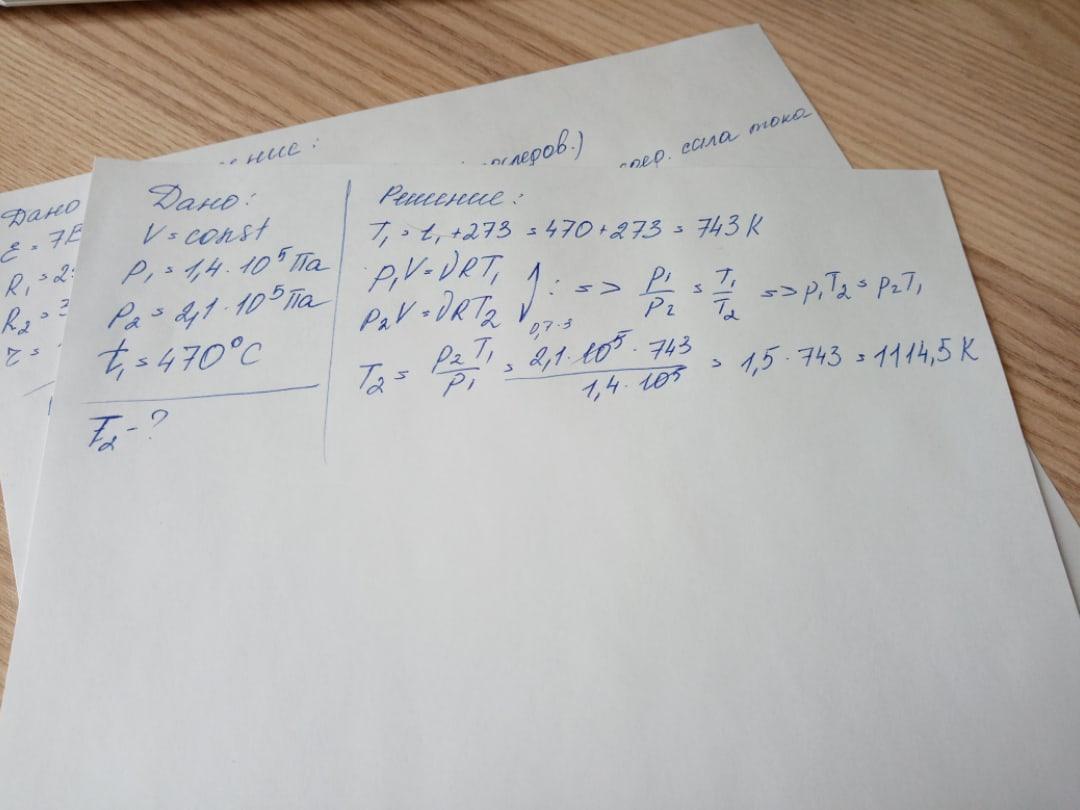 сила тока
Дано
ε = 7В
R₁ = 2
R₂ = 3
Дано:
V = const
p₁ = 1,4 · 10⁵ Па
p₂ = 2,1 · 10⁵ Па
t₁ = 470°C
T₂ - ?
Решение:
T₁ = t₁ + 273 = 470 + 273 = 743 K
p₁V = νRT₁
p₂V = νRT₂ : => p₁/p₂ = T₁/T₂ => p₁T₂ = p₂T₁
T₂ = p₂T₁/p₁ = 2,1 · 10⁵ · 743/1,4 · 10⁵ = 1,5 · 743 = 1114,5 K